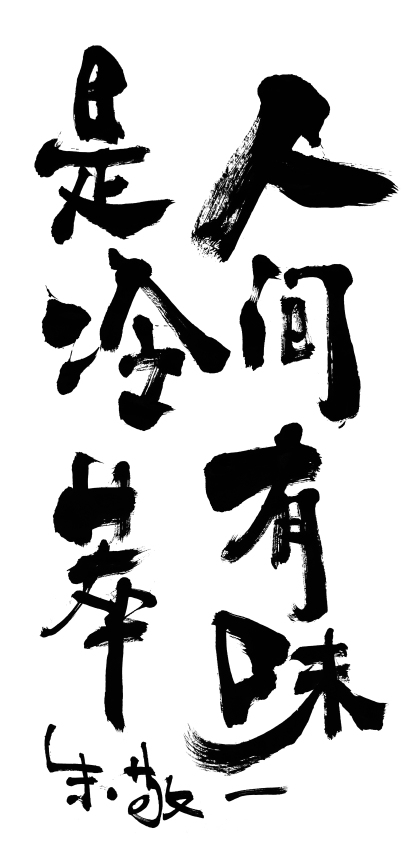 人间有味
是冷萃
朱敬一